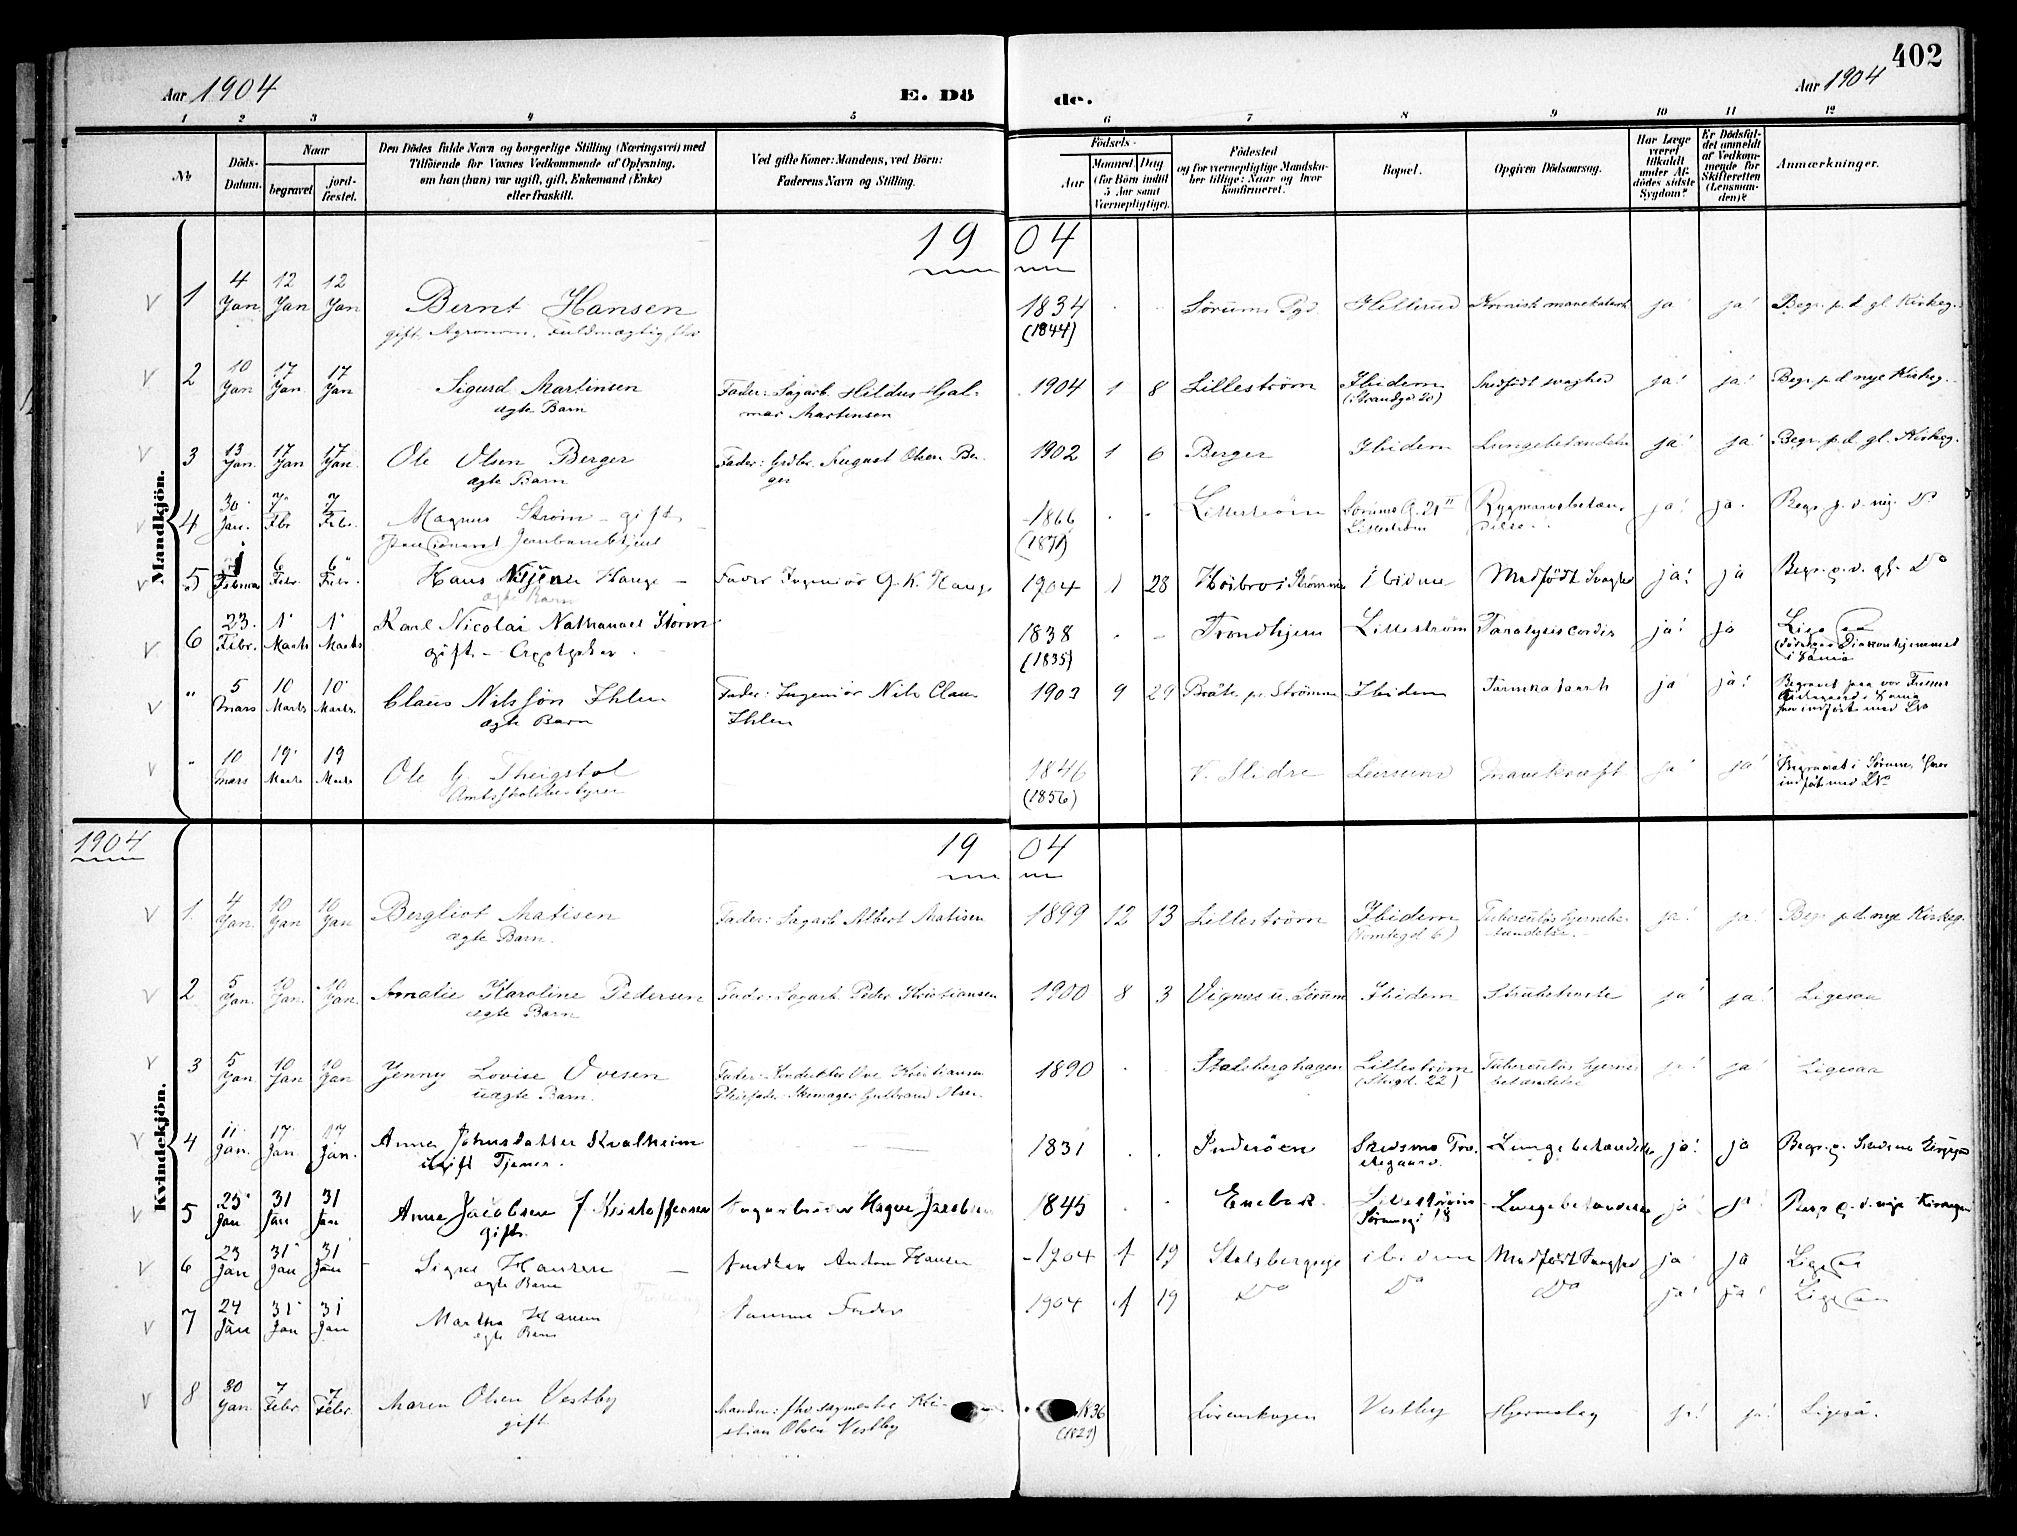 402
Aar 1904
E. Dö
de.
Aar 1904
1 2 3 4 5 6 7 8 9 10 11 12
No.
Döds-Datum.
Naar
begravet
jordfæstet.
Den Dödes fulde Navn og borgerlige Stilling (Næringsvei) med
Tilföiende for Voxnes Vedkommende af Oplysning,
om han (hun) var ugift, gift, Enkemand (Enke)
eller fraskilt.
Ved gifte Koner: Mandens, ved Börn:
Faderens Navn og Stilling.
Födsels-
Aar
Maaned Dag
(for Börn indtil
5 Aar samt
Værnepligtige).
Födested
og for værnepligtige Mandsku-
ber tillige: Naar og hvor
Konfirmeret.
Bopæl.
Opgiven Dödsaarsag.
Har Læge
været
tilkaldt
under Af-
dödes sidste
Sygdom?
Er Dödsfal-
det anmeldt
af Vedkom-
mende for
Skifteretten
(Lensman-
den)?
Anmærkninger.
Mandkjön.
1904
1 4 Jan 12 Jan 12 Jan Bernt Hansen 1834 Sørums Pgd. Hellerud ja! ja! Begr. p. d. gl. Kirkeg.
gift, Agronom, Fuldmægtig
(1844)
2 10 Jan 17 Jan 17 Jan Sigurd Martinsen Fader: Sagarb. Hildus Hjal- 1904 1 8 Lilleström Ibidem Medfödt svaghed ja! ja! Begr. p. d nye Kirkeg.
ægte Barn mar Martinsen (Strandgd 20)
3 13 Jan. 17 Jan 17 Jan. Ole Olsen Berger Fader: Grdbr. August Olsen Ber- 1902 1 6 Berger Ibidem Lungebetændelse ja! ja! Begr. p. d. gl. Kirkeg.
ægte Barn ger
4 30 Jan. 7 Febr 7 Febr. Magnus Strøm – gift 1866 Lilleström Rygmarvsbetæn- ja! ja. Begr. p. d. ny. Do
Lilleström delse
(1871)
5 Februar 6 Febr. 6 Febr. Hans Hauge Fader Ingeniør G. K. Hauge 1904 1 28 Høibro i Strømmen Ibidem Medfödt Svaghed ja! ja Begr. p. d. gl. Do
ægte Barn
6 23 Febr. 1 Marts 1 Marts Karl Nicolai Nathanael Storm 1838 Trondhjem Lilleström Paralysis cordis ja! ja Ligesaa
gift – Apotheker. (1835)
" 5 Mars 10 Marts 10 Marts. Claus Nilssøn Ihlen Fader: Ingeniør Nils Claus 1903 9 29 Bråte pr. Strömmen Ibidem Tarmkatarrh ja ja!
ægte Barn Ihlen
" 10 Mars 19 Marts 19 Marts Ole G. Theigstol 1846 V. Slidre Leirsund Mavekræft ja! ja! Begravet i Sørum,
Amtsskolebestyrer (1856) indført med No
Kvindekjön.
1904
1904
1. 4 Jan. 10 Jan 10 Jan Bergliot Matisen Fader: Sagarb Albert Matisen 1899 12 13 Lilleström Ibidem Tuberculös hjernebe- ja! ja! Begr. p. d. nye Kirkeg.
ægte Barn. (Tomtegd 6) tændelse.
2 5 Jan. 10 Jan. 10 Jan. Amalie Karoline Pedersen Fader: Sagarb. Peder Kristiansen 1900 8 3 Vignæs u. Sörum Ibidem Strubehoste ja! ja! Ligesaa
ægte Barn
3 5 Jan. 10 Jan 10 Jan Jenny Lovise Ovesen Fader: Konduktør Ove Kristiansen 1890 Stalsberghagen Lilleström Tuberculös hjerne- ja! ja! Ligesaa
uægte Barn. Pleiefader Skomager Gulbrand Olsen. (Skogd. 22) betændelse
4 11 Jan. 17 Jan 17 Jan. Anne Johnsdatter Kvalheim 1831 Inderöen Skedsmo Præ- Lungebetændelse ja! ja
Ugift Tjener. stegaard.
5 25 Jan 31 Jan 31 Jan Anne Jacobsen f. Kristoffersen Sagarbeider Jacobsen 1845 Enebak. Lilleström Lungebetændelse ja! ja! Begr. p. d. nye Kirkegaa
gift. 18
6 23 Jan 31 Jan 31 Jan Signe Hansen Anton Hansen 1904 1 19 Stalsberg ibidem Medfödt Svaghed ja ja Ligesaa
ægte Barn
7 24 Jan 31 Jan 31 Jan Martha Hansen Samme Fader 1904 1 19 Do Do Do ja! ja! Ligesaa
ægte Barn
8 30 Jan 7 Febr. 7 Febr. Maren Olsen Vestby Manden: fhv sagmester Kri- 1836 Lörenskogen Vestby Hjerneslag ja! ja! Ligesaa.
gift stian Olsen Vestby